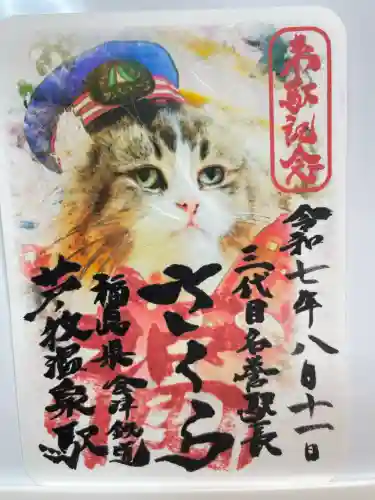 来駅記念
令和七年八月十一日
三代目名誉駅長
さくら
福島県会津鉄道
芦ノ牧温泉駅